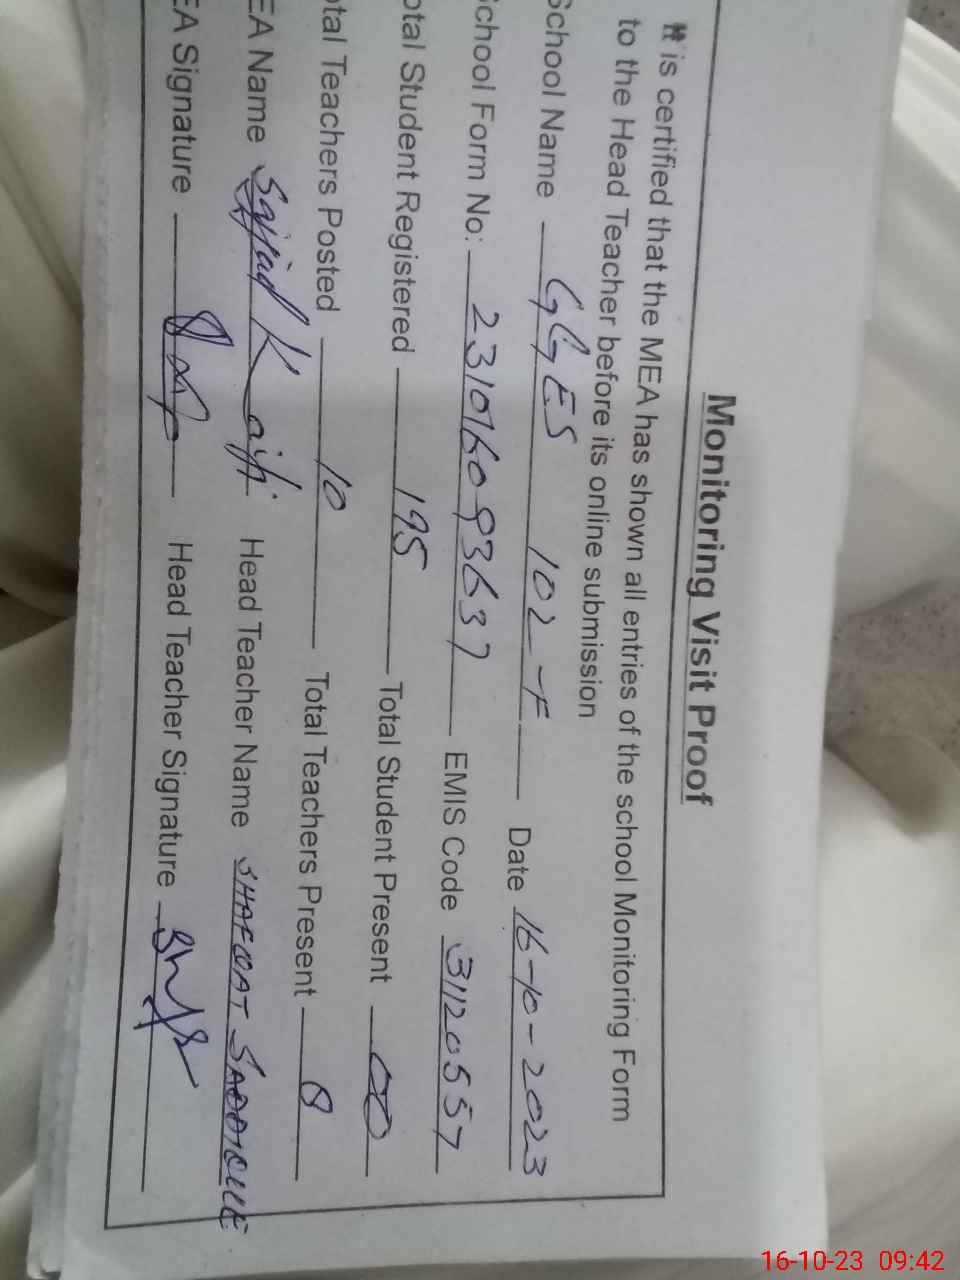 Monitoring Visit Proof
It is certified that the MEA has shown all entries of the school Monitoring Form
to the Head Teacher before its online submission
School Name GGES 102-F Date 16-10-2023
School Form No: 2310160 93637 EMIS Code 31120557
otal Student Registered 195 Total Student Present 00
otal Teachers Posted 10 Total Teachers Present 8
EA Name Sajjad K Head Teacher Name SHAFQAT SADDIQUE
EA Signature Head Teacher Signature
16-10-23 09:42